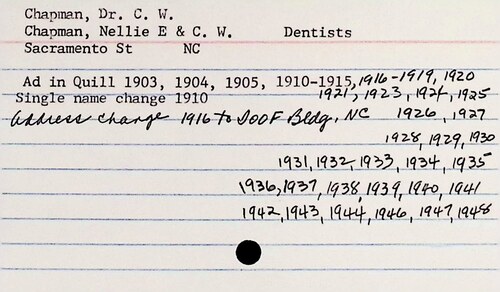 Chapman, Dr. C. W.
Chapman, Nellie E & C. W. Dentists
Sacramento St NC
Ad in Quill 1903, 1904, 1905, 1910-1915, 1916-1919, 1920
Single name change 1910 1921, 1923, 1924, 1925
Address change 1916 to IOOF Bldg, NC 1926, 1927
1928, 1929, 1930
1931, 1932, 1933, 1934, 1935
1936, 1937, 1938, 1939, 1940, 1941
1942, 1943, 1944, 1946, 1947, 1948